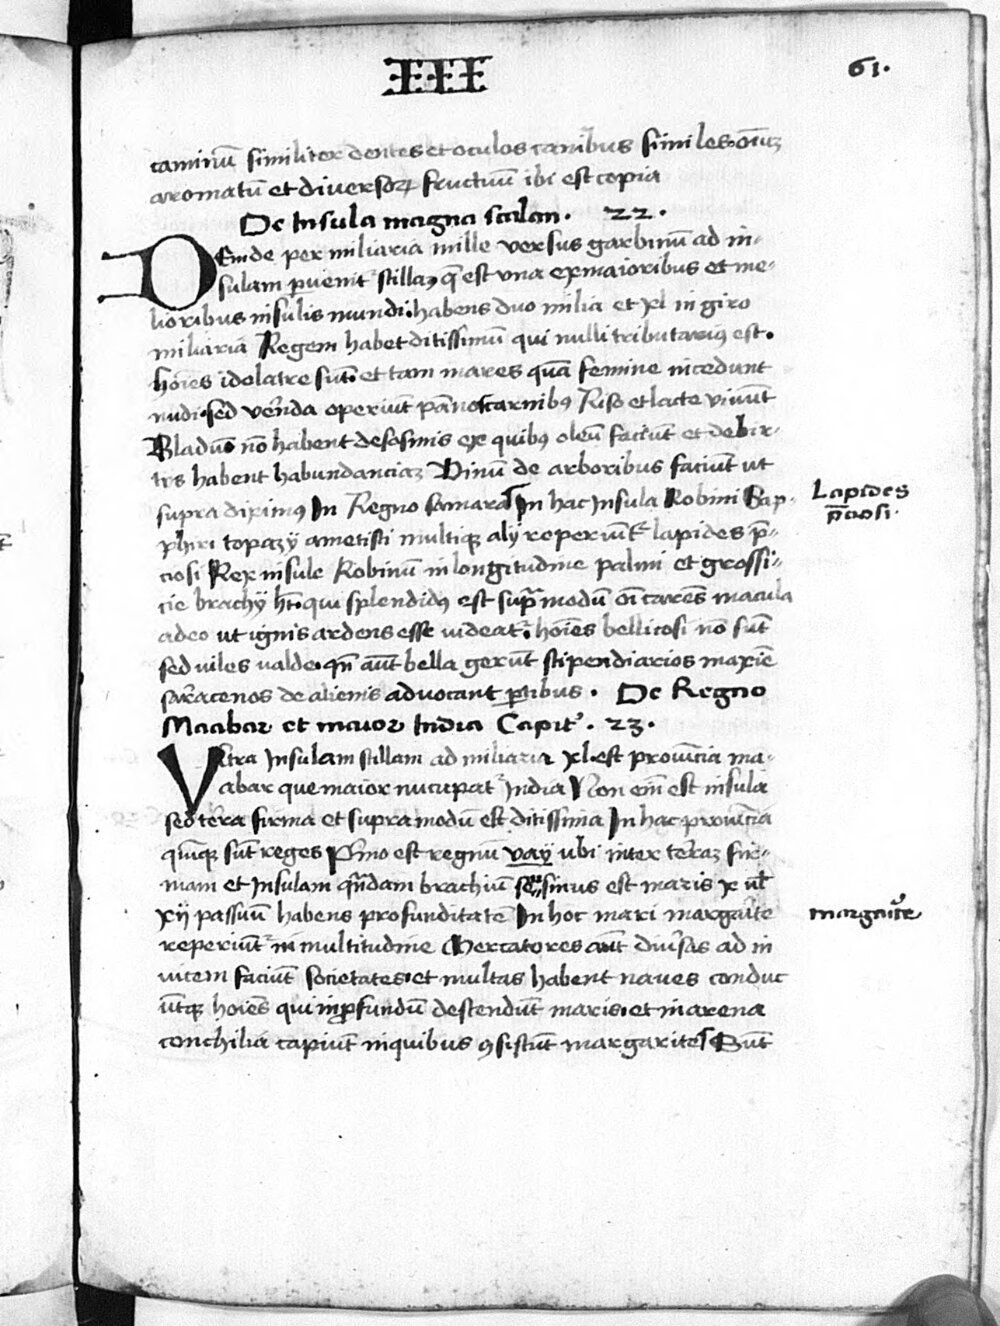 IIII
61.
caninum similiter dentes et oculos canibus similes. oĩuʒ
aromatũ et diversoꝝ fructuũ ibi est copia
De Insula magna scilan. 22.
DEinde per miliaria mille versus garbinũ ad in-
sulam ꝑuenit᷑ stillaꝫ q̃ est vna ex maioribus et me-
lioribus insulis mundi. habens duo milia et xl in giro
miliaria Regem habet ditissimũ qui nulli tributarius est.
hoĩes idolatre sũt. et tam mares quã femine incedunt
nudi. sed ver̃nda operiũt pãno carnibꝰ Riso et lacte viuũt
Bladuꝫ nõ habent de sosimis ex quibꝰ oleũ faciũt et de bir-
tes habent habundanciaꝫ Vinũ de arboribus faciũt ut
supra diximꝰ In Regno samara In hac Insula Robini Sap-
phiri topazÿ ametisti multiqꝫ alÿ reperiũt᷑ lapides p̃-
ciosi Rex insule Robinũ in longitudine palmi et grossi-
cie brachÿ hʒ. qui splendidꝰ est supͣ modũ oĩ carẽs macula
adeo ut ignis ardens esse videat᷑. hoĩes bellicosi nõ sũt
sed viles valde. qñ aũt bella gerũt stipendiarios maxĩe
sar̃acenos de alienis advocant ꝑtibus. De Regno
Maabar et maior India Capitꝰ. 23.
Vltra Insulam stillam ad miliaria xl. est prouĩcia ma-
abar que maior nũcupat᷑ India Non eĩm est insula
sed tera firma et supra modũ est ditissima In hac prouĩcia
quĩqꝫ sũt reges Pͥmo est regnũ vaÿ ubi inter teraꝫ fir-
mam et Insulam qñdam brachiũ seu sinus est maris x ul̃
xij passuũ habens profunditatẽ In hoc mari margar̃ite
reperiũt᷑ in multitudine Mercatores aũt diuʼsas ad in
vicem faciũt societates. et multas habent naves conduc
ũtqꝫ hoĩes qui in ꝓfundũ descendũt maris. et in arena
conchilia capiũt in quibus ꝯsistũt margarite Sũt
Lapides
p̃ciosi.
margar̃ite